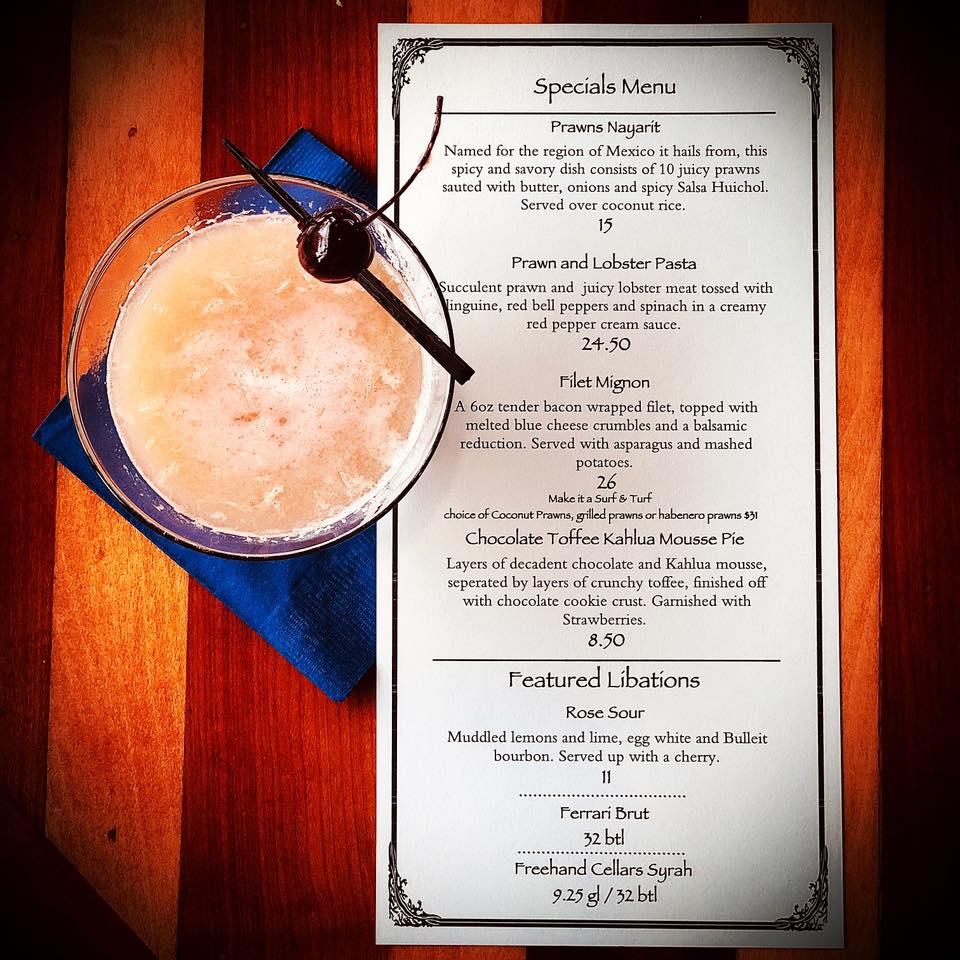 Specials Menu
Prawns Nayarit
Named for the region of Mexico it hails from, this
spicy and savory dish consists of 10 juicy prawns
sauted with butter, onions and spicy Salsa Huichol.
Served over coconut rice.
15
Prawn and Lobster Pasta
Succulent prawn and juicy lobster meat tossed with
linguine, red bell peppers and spinach in a creamy
red pepper cream sauce.
24.50
Filet Mignon
A 6oz tender bacon wrapped filet, topped with
melted blue cheese crumbles and a balsamic
reduction. Served with asparagus and mashed
potatoes.
26
Make it a Surf & Turf
choice of Coconut Prawns, grilled prawns or habenero prawns $31
Chocolate Toffee Kahlua Mousse Pie
Layers of decadent chocolate and Kahlua mousse,
seperated by layers of crunchy toffee, finished off
with chocolate cookie crust. Garnished with
Strawberries.
8.50
Featured Libations
Rose Sour
Muddled lemons and lime, egg white and Bulleit
bourbon. Served up with a cherry.
11
Ferrari Brut
32 btl
Freehand Cellars Syrah
9.25 gl / 32 btl